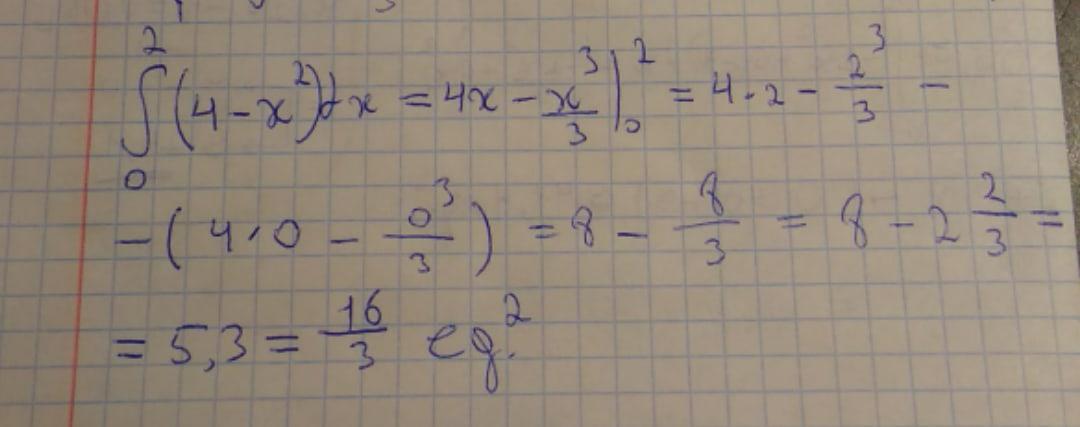 ∫₀² (4 - x²)dx = 4x - x³/3 |₀² = 4·2 - 2³/3 -
- (4·0 - 0³/3) = 8 - 8/3 = 8 - 2 2/3 =
= 5,3 = 16/3 eg.²